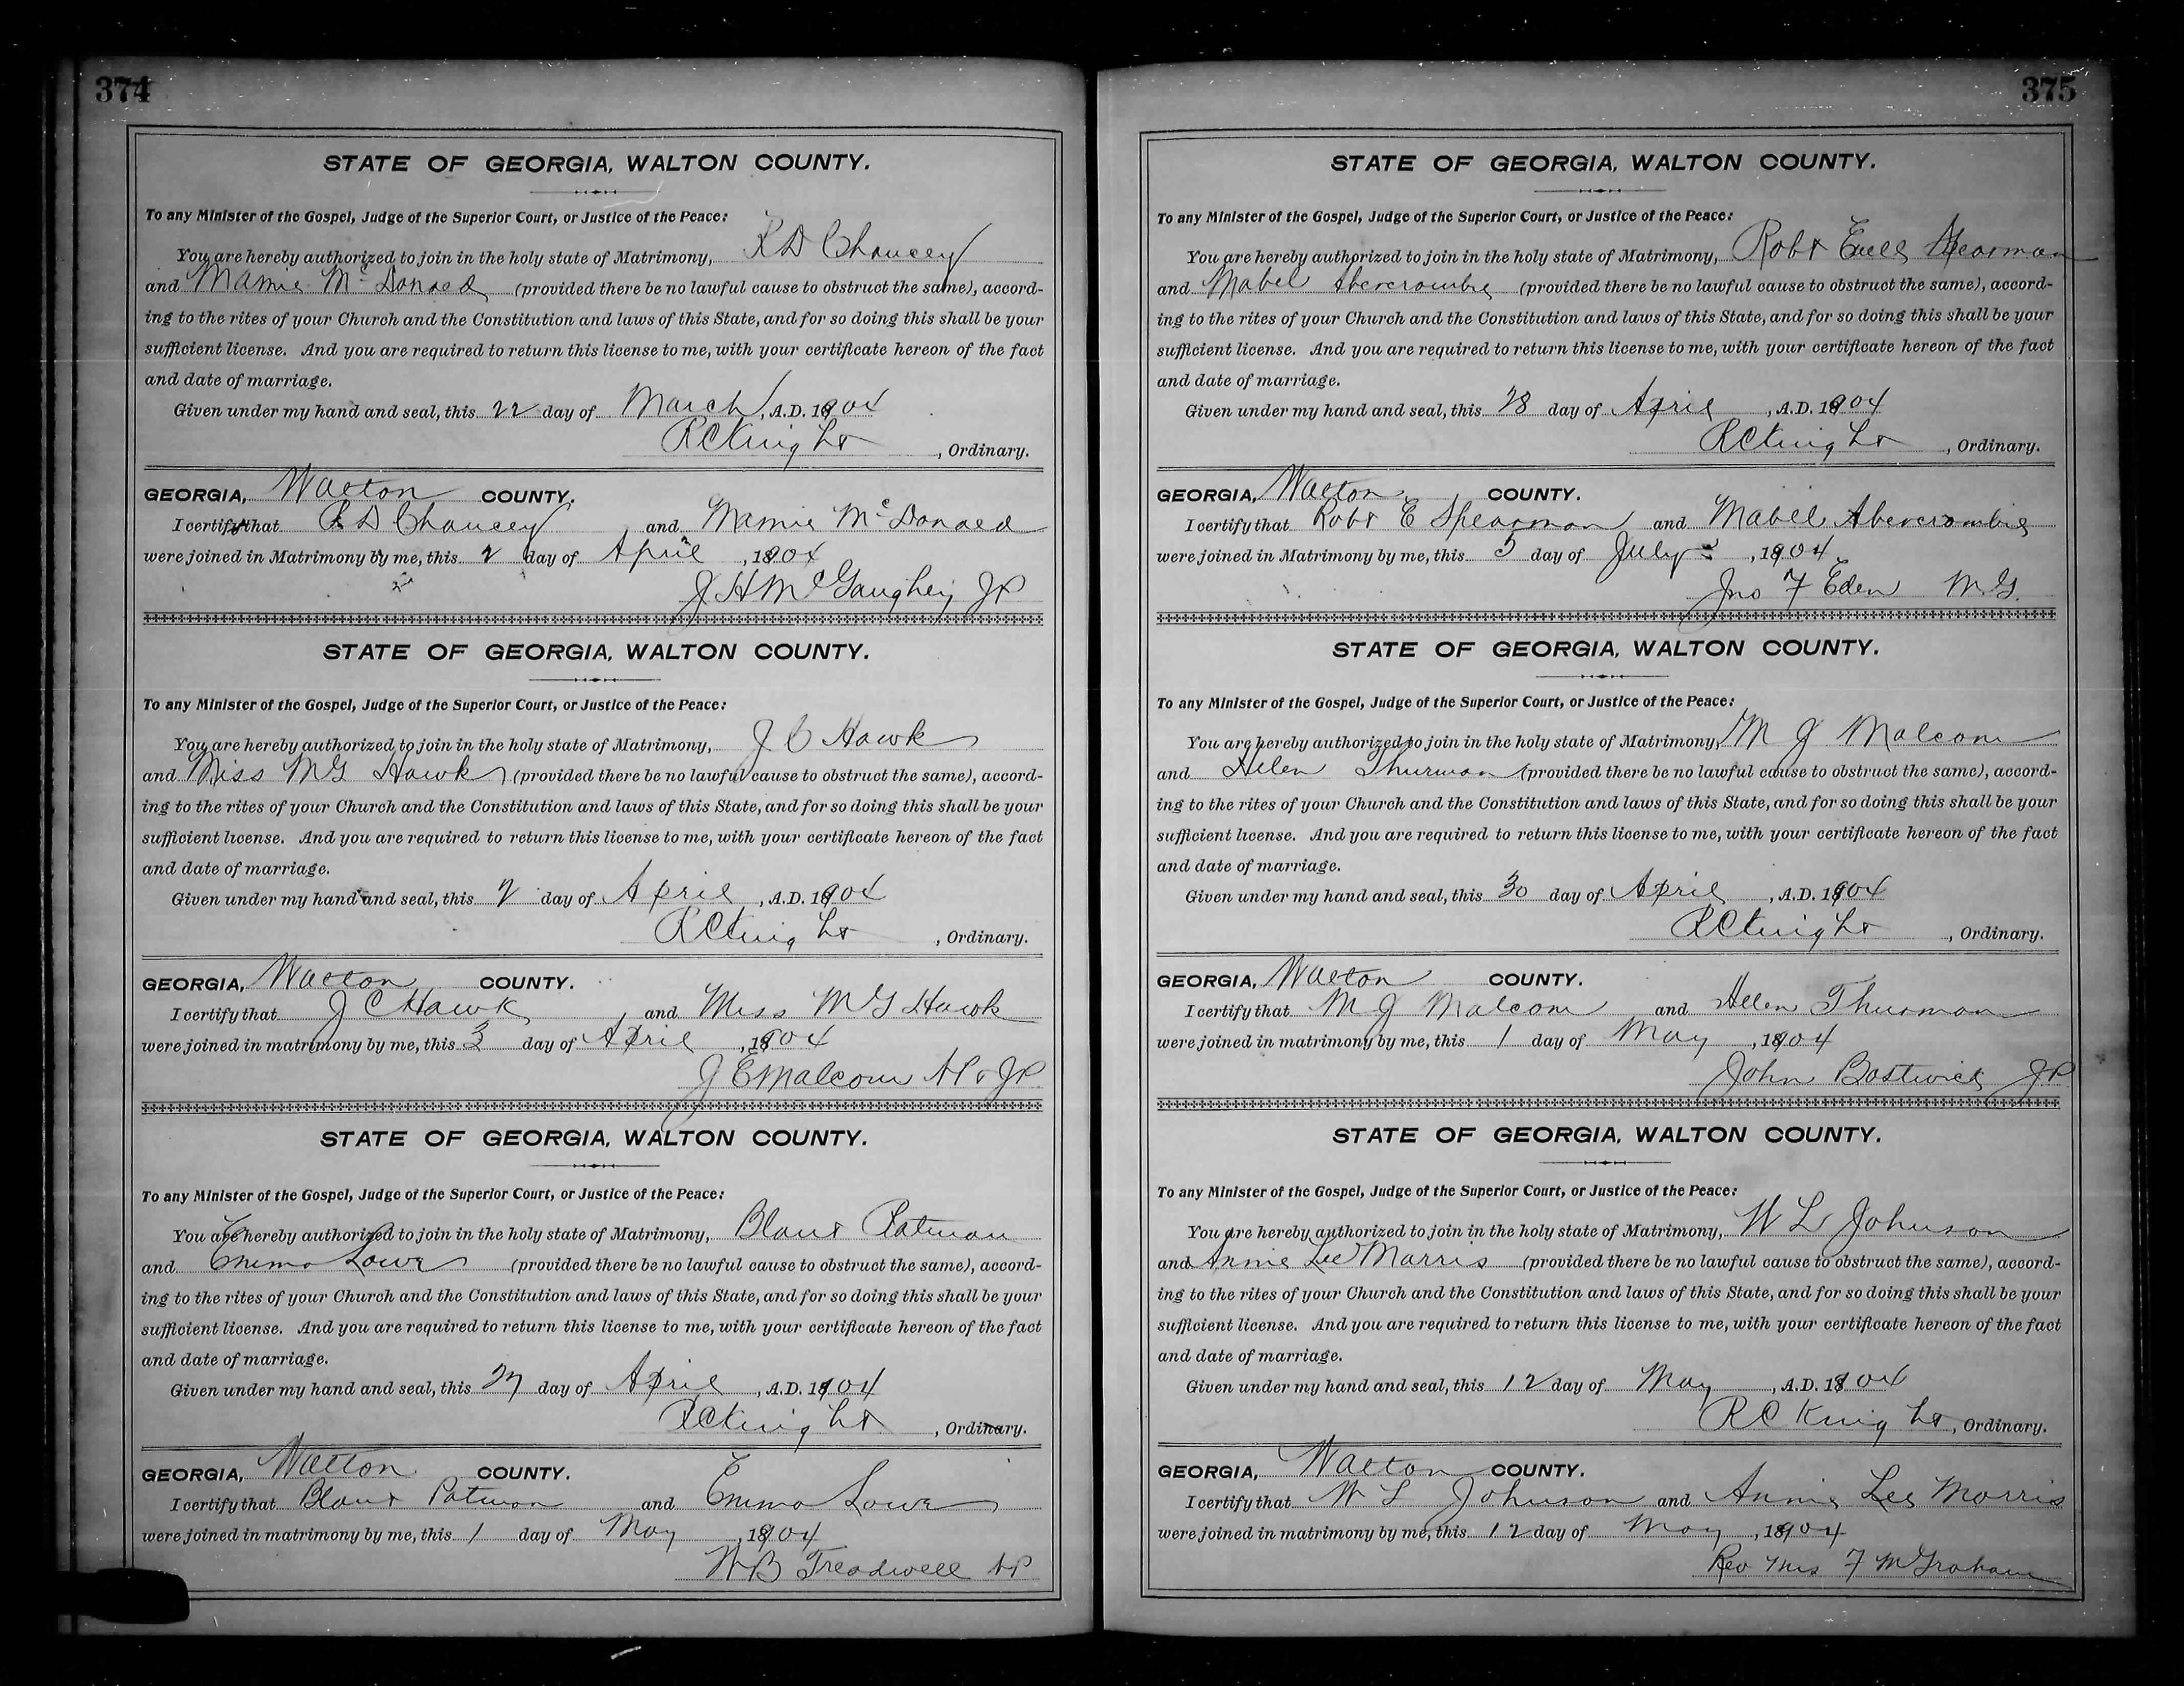 374
STATE OF GEORGIA, WALTON COUNTY.
To any Minister of the Gospel, Judge of the Superior Court, or Justice of the Peace:
You are hereby authorized to join in the holy state of Matrimony, R D Chancey
and Mamie McDonald (provided there be no lawful cause to obstruct the same), accord-
ing to the rites of your Church and the Constitution and laws of this State, and for so doing this shall be your
sufficient license. And you are required to return this license to me, with your certificate hereon of the fact
and date of marriage.
Given under my hand and seal, this 22 day of March, A.D. 1904
R C Knight, Ordinary.
GEORGIA, Walton COUNTY.
I certify that R D Chancey and Mamie McDonald
were joined in Matrimony by me, this 2 day of April, 1904
J H McGaughey JP
STATE OF GEORGIA, WALTON COUNTY.
To any Minister of the Gospel, Judge of the Superior Court, or Justice of the Peace:
You are hereby authorized to join in the holy state of Matrimony, J C Hawk
and Miss M G Hawk (provided there be no lawful cause to obstruct the same), accord-
ing to the rites of your Church and the Constitution and laws of this State, and for so doing this shall be your
sufficient license. And you are required to return this license to me, with your certificate hereon of the fact
and date of marriage.
Given under my hand and seal, this 2 day of April, A.D. 1904
R C Knight, Ordinary.
GEORGIA, Walton COUNTY.
I certify that J C Hawk and Miss M G Hawk
were joined in matrimony by me, this 3 day of April, 1904
J E Malcom JP
STATE OF GEORGIA, WALTON COUNTY.
To any Minister of the Gospel, Judge of the Superior Court, or Justice of the Peace:
You are hereby authorized to join in the holy state of Matrimony, Blant Patman
and Emma Lowe (provided there be no lawful cause to obstruct the same), accord-
ing to the rites of your Church and the Constitution and laws of this State, and for so doing this shall be your
sufficient license. And you are required to return this license to me, with your certificate hereon of the fact
and date of marriage.
Given under my hand and seal, this 27 day of April, A.D. 1904
R C Knight, Ordinary.
GEORGIA, Walton COUNTY.
I certify that Blant Patman and Emma Lowe
were joined in matrimony by me, this 1 day of May, 1904
W B Treadwell NP
375
STATE OF GEORGIA, WALTON COUNTY.
To any Minister of the Gospel, Judge of the Superior Court, or Justice of the Peace:
You are hereby authorized to join in the holy state of Matrimony, Robt Euell Spearman
and Mabel Abercrombie (provided there be no lawful cause to obstruct the same), accord-
ing to the rites of your Church and the Constitution and laws of this State, and for so doing this shall be your
sufficient license. And you are required to return this license to me, with your certificate hereon of the fact
and date of marriage.
Given under my hand and seal, this 28 day of April, A.D. 1904
R C Knight, Ordinary.
GEORGIA, Walton COUNTY.
I certify that Robt E Spearman and Mabell Abercrombie
were joined in Matrimony by me, this 5 day of July, 1904
Jno F Eden M.G.
STATE OF GEORGIA, WALTON COUNTY.
To any Minister of the Gospel, Judge of the Superior Court, or Justice of the Peace:
You are hereby authorized to join in the holy state of Matrimony, M J Malcom
and Helen Thurman (provided there be no lawful cause to obstruct the same), accord-
ing to the rites of your Church and the Constitution and laws of this State, and for so doing this shall be your
sufficient license. And you are required to return this license to me, with your certificate hereon of the fact
and date of marriage.
Given under my hand and seal, this 30 day of April, A.D. 1904
R C Knight, Ordinary.
GEORGIA, Walton COUNTY.
I certify that M J Malcom and Helen Thurman
were joined in matrimony by me, this 1 day of May, 1904
John Bostwick JP
STATE OF GEORGIA, WALTON COUNTY.
To any Minister of the Gospel, Judge of the Superior Court, or Justice of the Peace:
You are hereby authorized to join in the holy state of Matrimony, W L Johnson
and Annie Lee Morris (provided there be no lawful cause to obstruct the same), accord-
ing to the rites of your Church and the Constitution and laws of this State, and for so doing this shall be your
sufficient license. And you are required to return this license to me, with your certificate hereon of the fact
and date of marriage.
Given under my hand and seal, this 12 day of May, A.D. 1904
R C Knight, Ordinary.
GEORGIA, Walton COUNTY.
I certify that W L Johnson and Annie Lee Morris
were joined in matrimony by me, this 12 day of May, 1904
Rev F McGraham